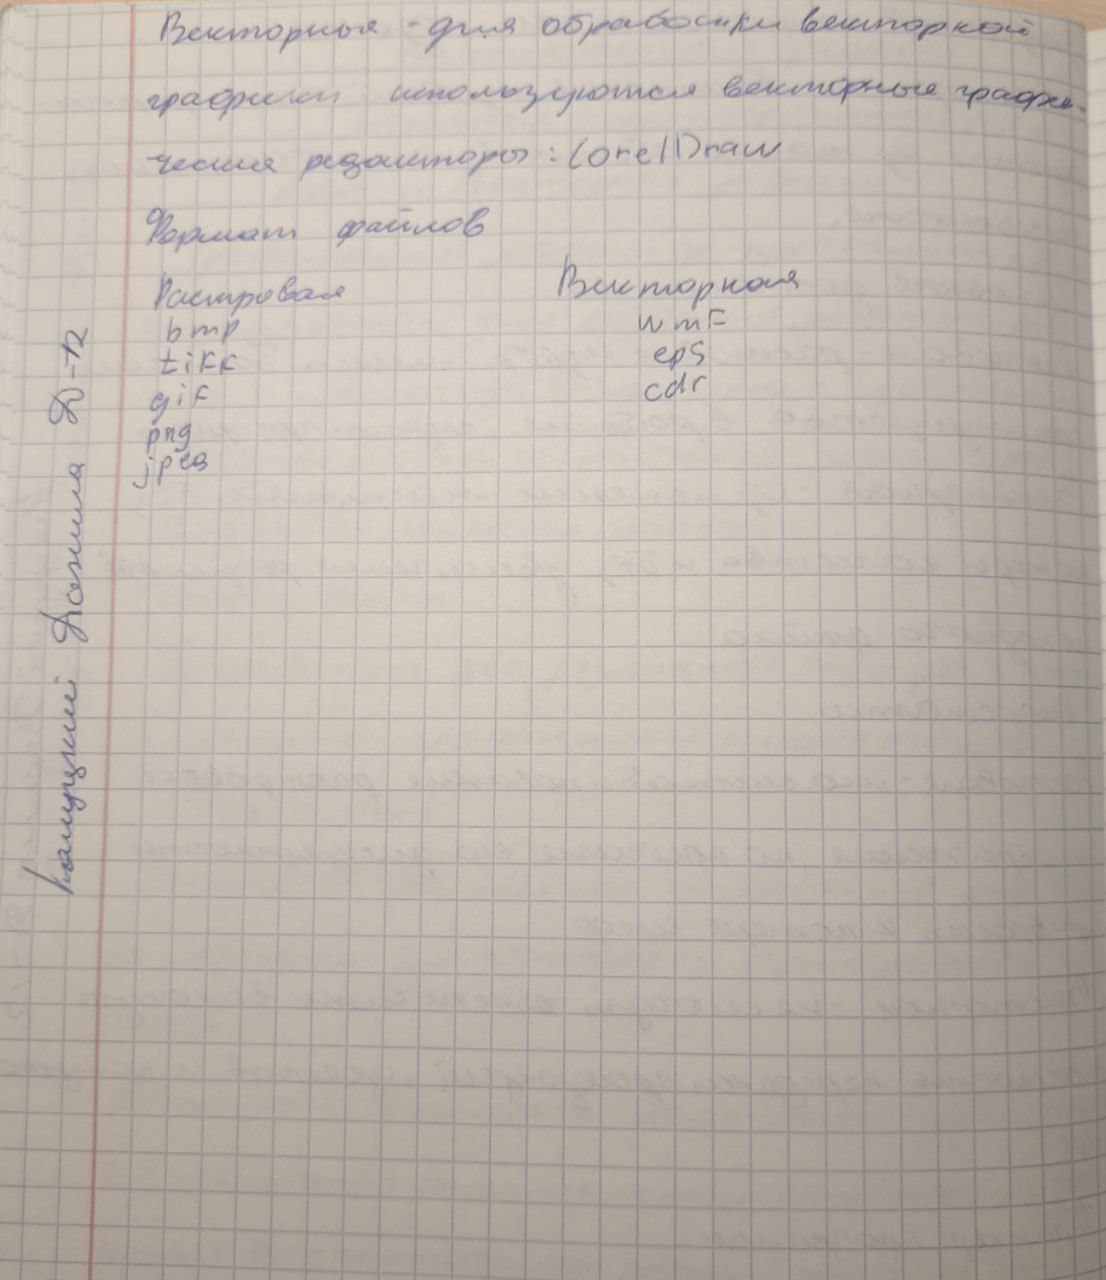 Векторные - для обработки векторной
графики используются векторные графи-
ческие редакторы: CorelDraw
Формат файлов
Растровая
Векторная
bmp
wmF
tiFF
eps
giF
cdr
png
jpeg
Данила Д-12